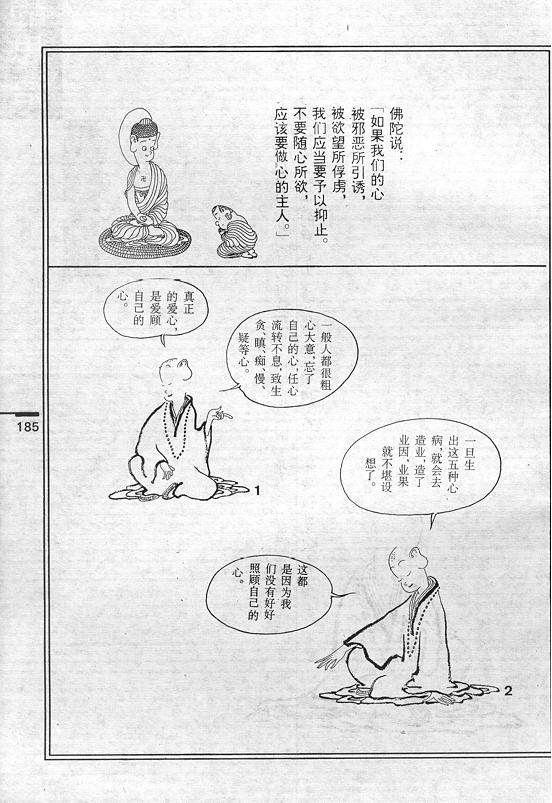 佛陀说：
「如果我们的心
被邪恶所引诱，
被欲望所俘虏，
我们应当要予以抑止。
不要随心所欲，
应该要做心的主人。」
真正
的爱心，
是爱顾
自己的
心。
一般人都很粗
心大意，忘了
自己的心，任心
流转不息，致生
贪、瞋、痴、慢、
疑等心。
1
185
一旦生
出这五种心
病，就会去
造业，造了
业因，业果
就不堪设
想了。
这都
是因为我
们没有好好
照顾自己的
心。
2